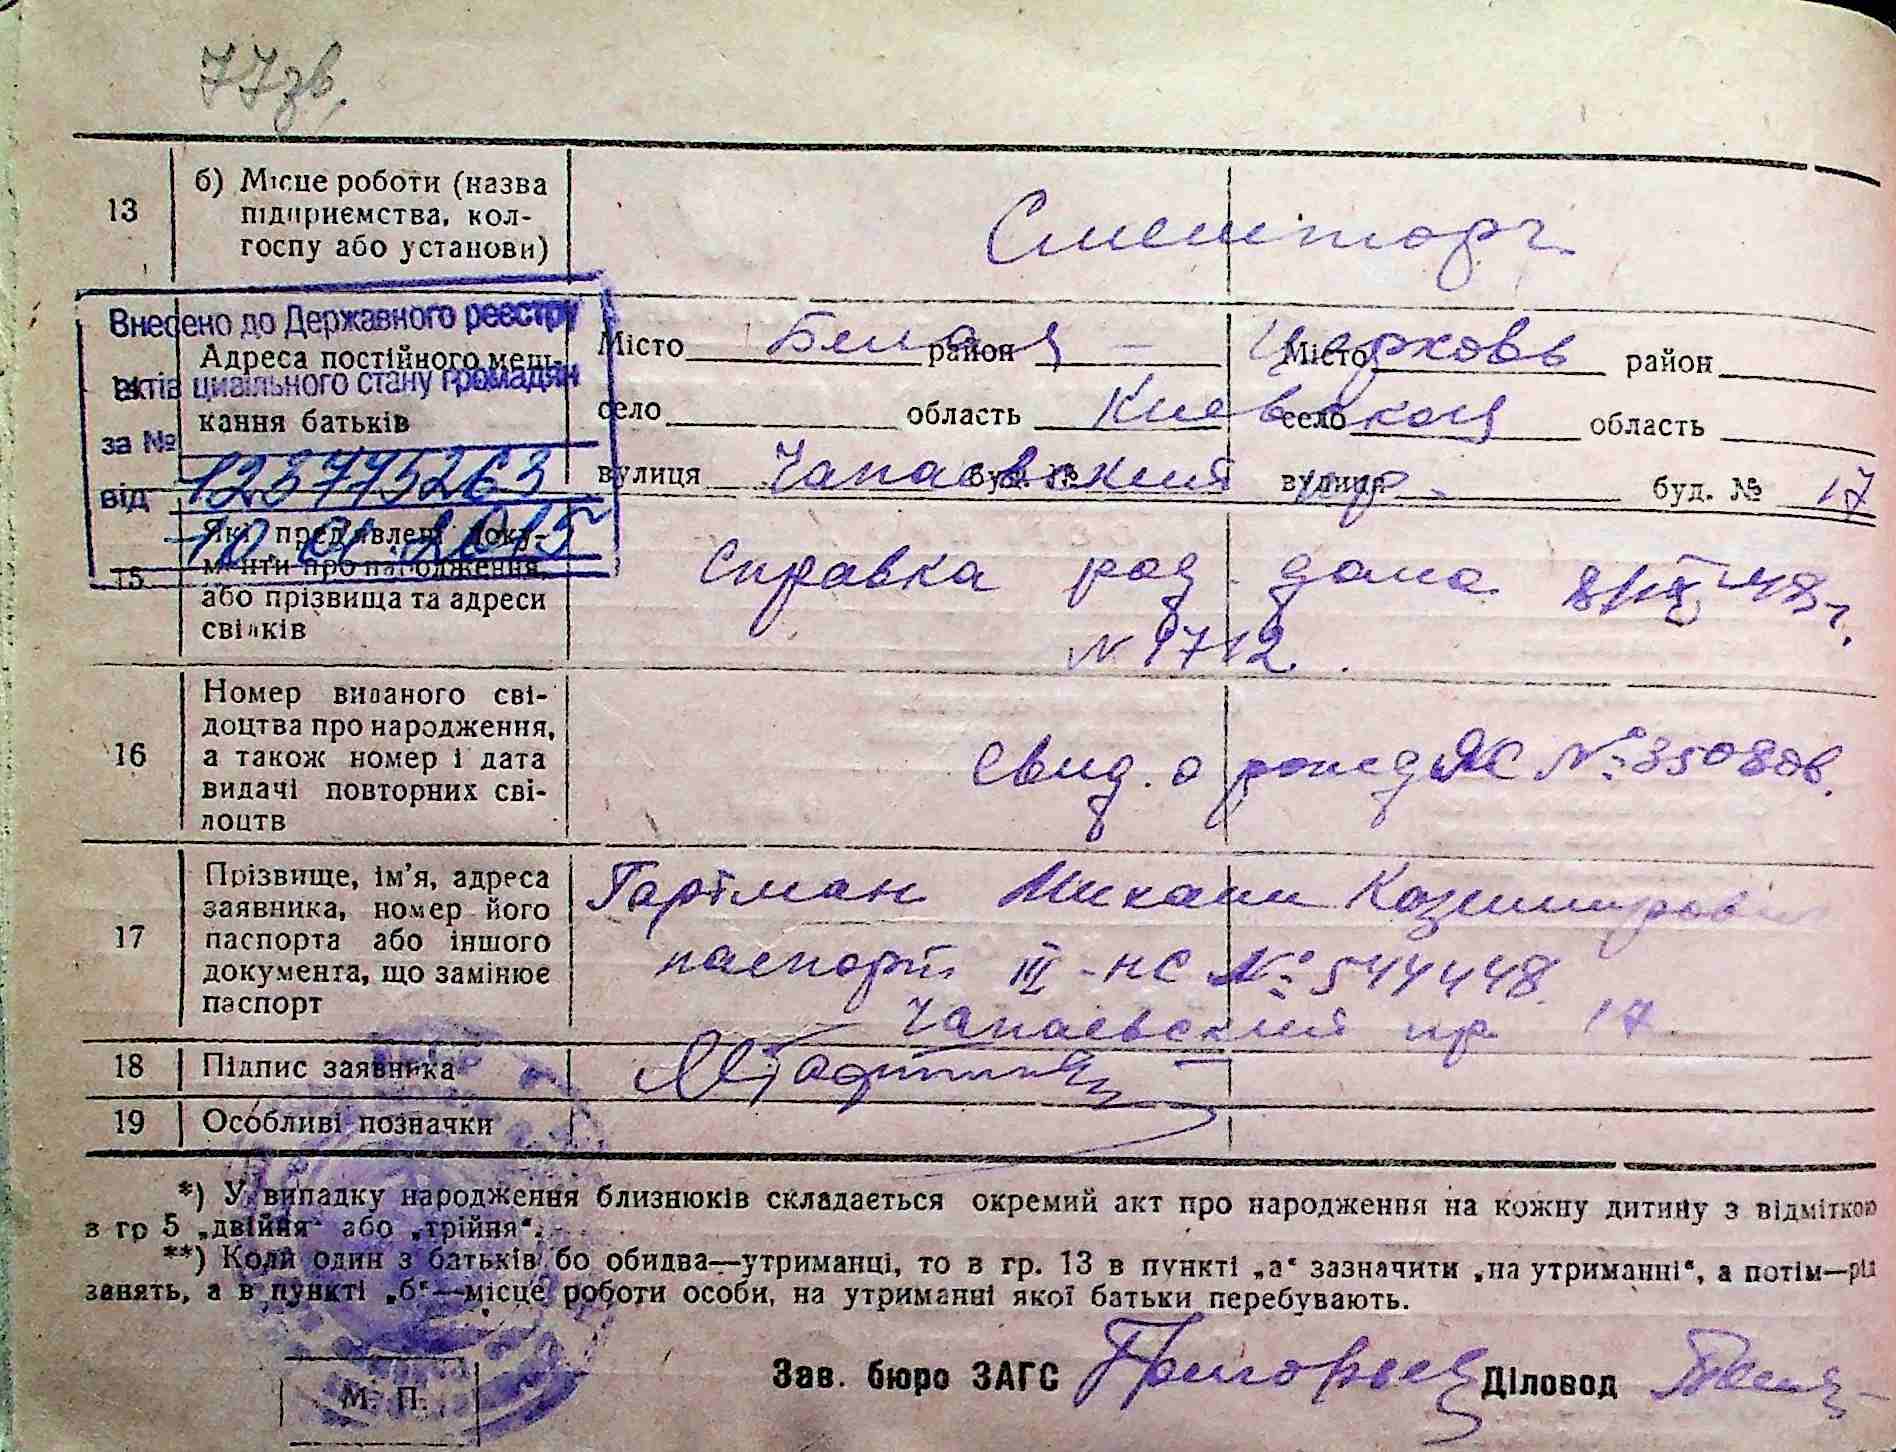 77зв.
13 б) Місце роботи (назва
підприємства, кол-
госпу або установи)
Смешторг
Внесено до Державного реєстру
актів цивільного стану громадян
за № 123775263
від 10.01.2015
Адреса постійного меш-
кання батьків
Місто Белая район - Місто Церковь район
село область Киевской село область
вулиця Чапаевский буд. № вулиця пр. буд. № 17
15 Які пред'явлені доку-
менти про народження,
або прізвища та адреси
свідків
Справка род. дома 8/IX 48 г.
N 1712.
16 Номер виданого сві-
доцтва про народження,
а також номер і дата
видачі повторних сві-
доцтв
Свид. о рожд ЯС №
17 Прізвище, ім'я, адреса
заявника, номер його
паспорта або іншого
документа, що замінює
паспорт
Гартман Михаил Казимирович
паспорт III-НС № 544448
Чапаевский пр 17.
18 Підпис заявника
19 Особливі позначки
*) У випадку народження близнюків складається окремий акт про народження на кожну дитину з відміткою
в гр 5 „двійня“ або „трійня“.
**) Коли один з батьків бо обидва—утриманці, то в гр. 13 в пункті „а“ зазначити „на утриманні“, а потім—рід
занять, а в пункті „б“—місце роботи особи, на утриманні якої батьки перебувають.
Зав. бюро ЗАГС Григорьев Діловод
М. П.